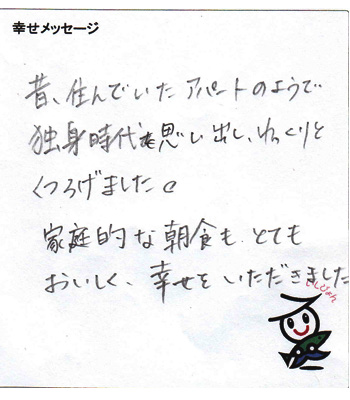 幸せメッセージ
昔、住んでいたアパートのようで
独身時代を思い出し、ゆっくりと
くつろげました。
家庭的な朝食も、とても
おいしく、幸せをいただきました